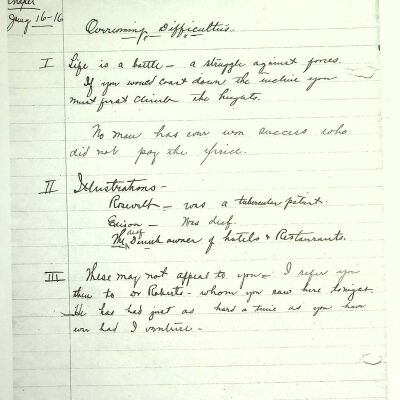 Chapel
Jany 16-16
Overcoming Difficulties.
I Life is a battle - a struggle against forces.
If you would coast down the incline you
must first climb the heights.
No man has ever won success who
did not pay the price.
II Illustrations -
Rosevelt - was a tubercular patient.
Edison - Was deaf.
deaf
Mr. owner of hotels & Restaurants.
III These may not appeal to you - I refer you
then to Dr Roberts - whom you saw here tonight.
He has had just as hard a time as you have
ever had I venture -